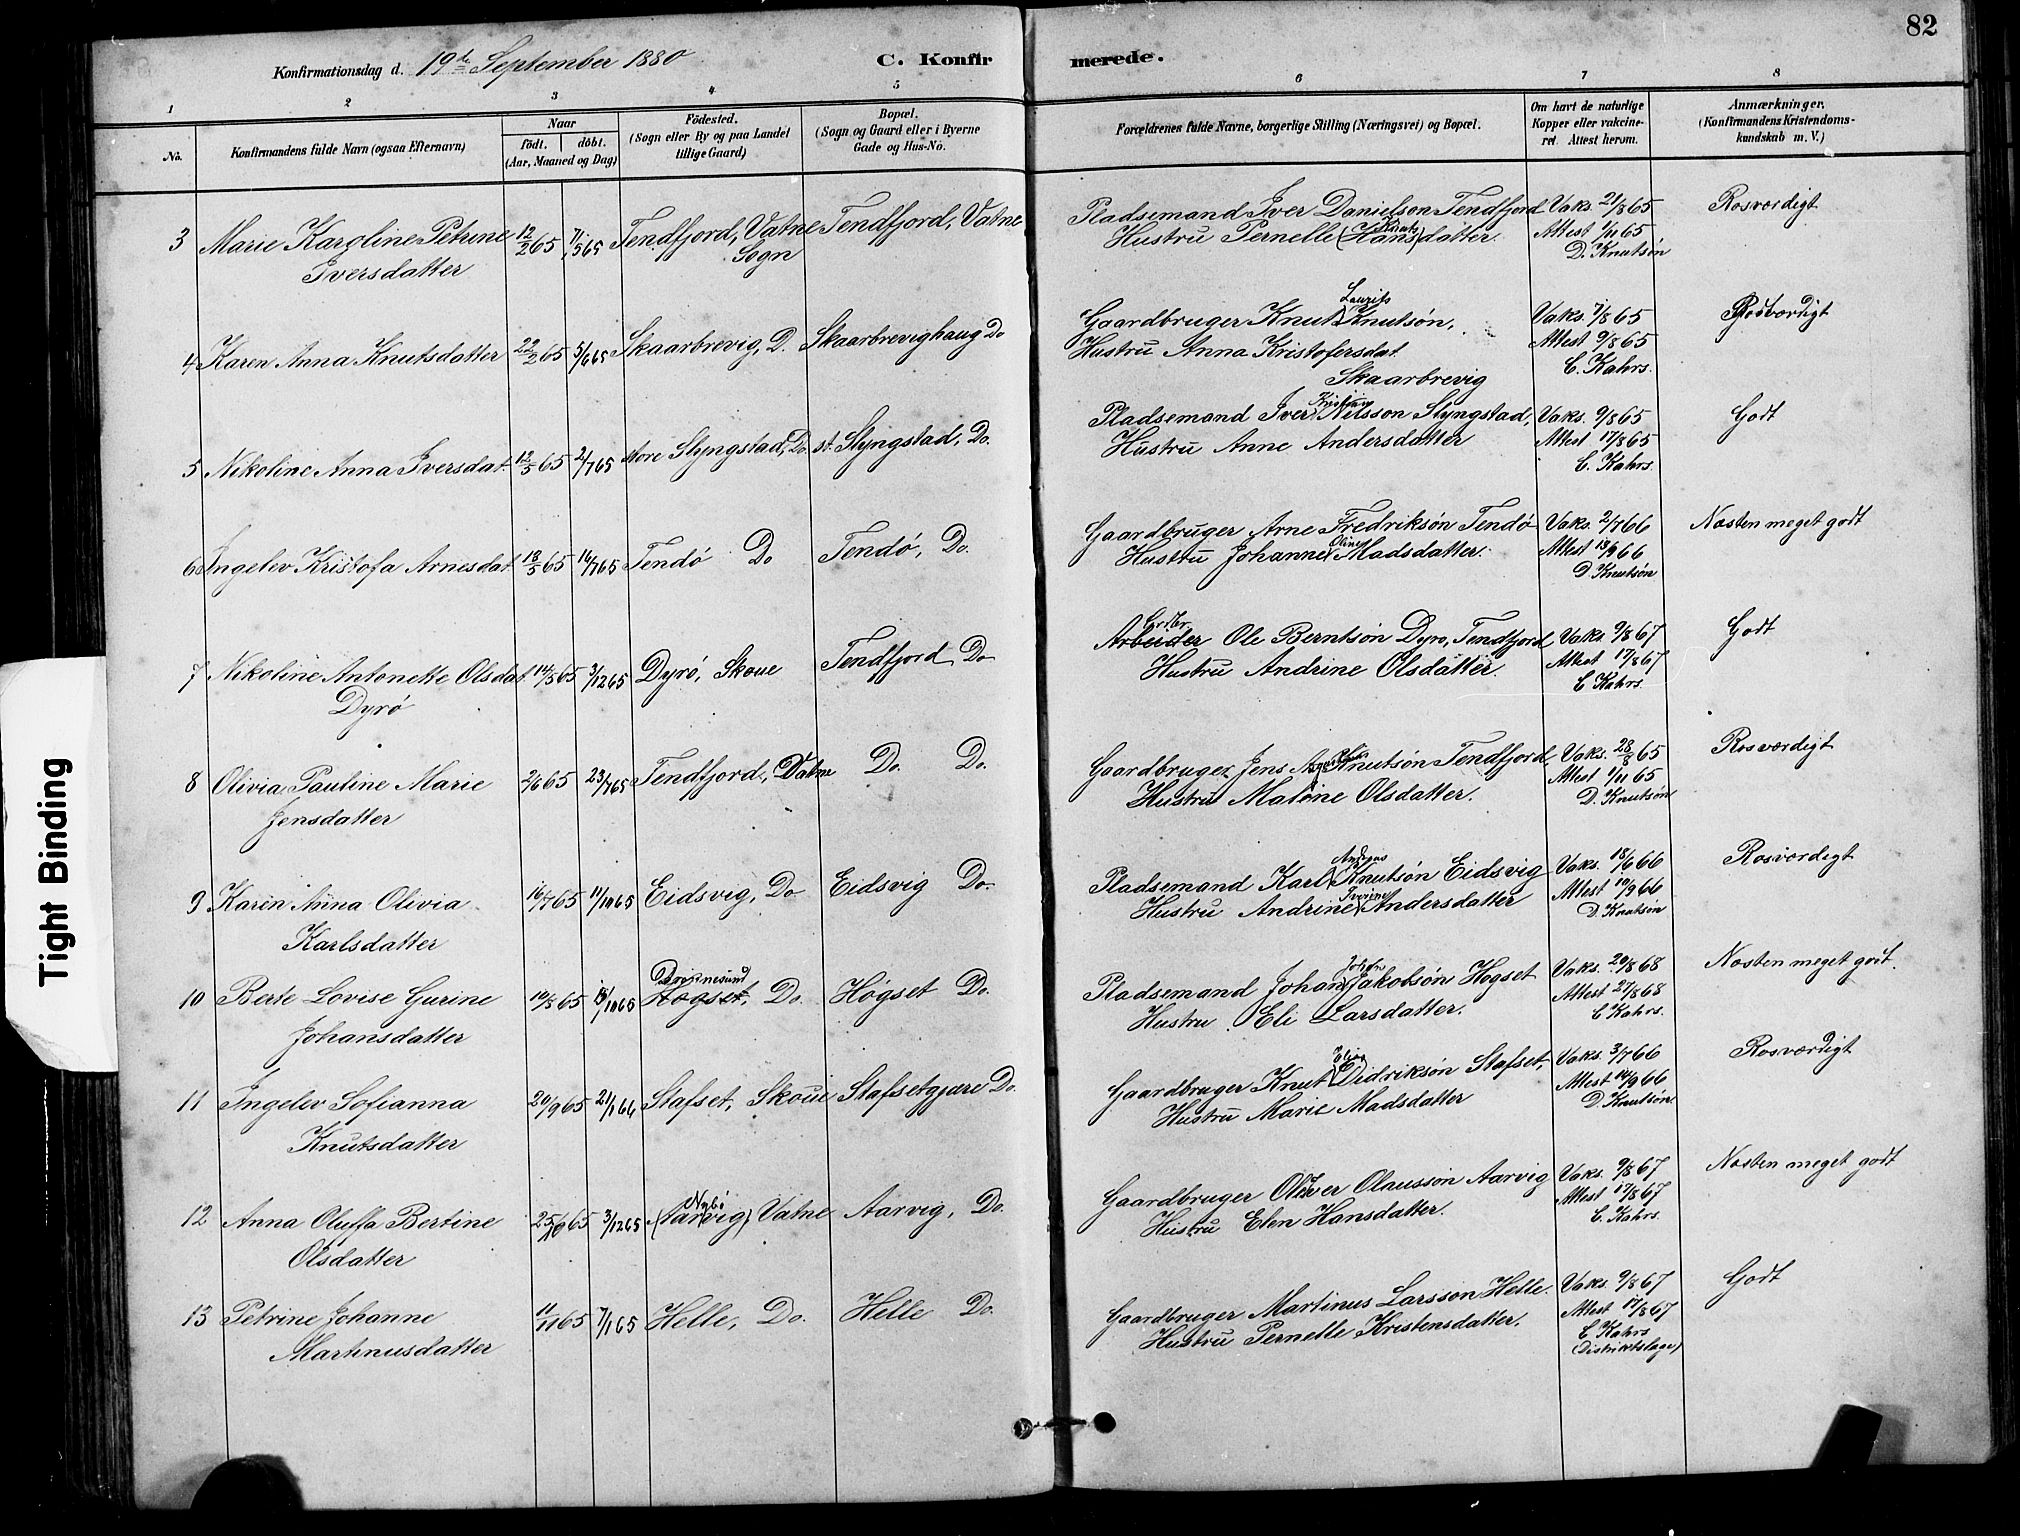 82
Konfirmationsdag d. 19de September 1880 C. Konfirmerede.
1 2 3 4 5 6 7 8
No. Konfirmandens fulde Navn (ogsaa Efternavn) Naar født. døbt. (Aar, Maaned og Dag) Fødested. (Sogn eller By og paa Landet tillige Gaard) Bopæl. (Sogn og Gaard eller i Byerne Gade og Hus-No. Forældrenes fulde Navne, borgerlige Stilling (Næringsvei) og Bopæl. Om havt de naturlige Kopper eller vakcineret. Attest herom. Anmærkninger. (Konfirmandens Kristendomskundskab m. V.)
3 Marie Karoline Petrine 12/2 65 7/5 65 Tendfjord, Vatne Tendfjord, Vatne Pladsemand Iver Danielson Tendfjord Vaks. 21/8 65 Rosværdigt
Iversdatter Sogn Hustru Pernelle (Hans) Knuts datter. Attest 1/11 65
D. Knutsøn
4 Karen Anna Knutsdatter 22/2 65 5/6 65 Skaarbrevig, D. Skaarbrevighaug Do Gaardbruger Knut Laurits Knutsøn, Vaks. 7/8 65 Rosværdigt
Hustru Anna Kristofersdat. Attest 9/8 65
Skaarbrevig C. Kahrs.
5 Nikoline Anna Iversdat. 12/5 65 2/7 65 store Slyngstad, Do. st. Slyngstad, Do. Pladsemand Iver Nilsson Slyngstad, Vaks. 9/8 65 Godt
Hustru Anne Andersdatter Attest 17/8 65
C. Kahrs.
6 Ingelev Kristofa Arnesdat. 18/5 65 16/7 65 Tendö Do Tendö, Do. Gaardbruger Arne Fredriksøn Tendö Vaks. 2/7 66 Næsten meget godt
Hustru Johanne Oline Madsdatter. Attest 13/9 66
D. Knutsøn
7 Nikoline Antonette Olsdat. 14/5 65 3/12 65 Dyrö, Skoue Tendfjord Do Arbeider Ole Berntsøn Dyrø, Tendfjord Vaks 9/8 67 Godt
Dyrö Hustru Andrine Olsdatter. Attest 17/8 67
C Kahrs.
8 Olivia Pauline Marie 2/6 65 23/7 65 Tendfjord, Vatne Do. Do. Gaardbruger Jens Knutsøn Tendfjord, Vaks. 28/8 65 Rosværdigt
Jensdatter Hustru Maløne Olsdatter. Attest 1/11 65
D. Knutsøn
9 Karen Anna Olivia 16/7 65 1/10 65 Eidsvig, Do Eidsvig Do. Pladsemand Karl Andreas Knutsøn Eidsvig Vaks. 18/6 66 Rosværdigt
Karlsdatter Hustru Andrine Iverine Andersdatter Attest 10/9 66
D. Knutsøn
10 Berte Lovise Gurine 10/8 65 15/10 65 Høgset, Do. Høgset Do. Pladsemand Johan Jakobsøn Høgset Vaks. 20/8 68 Næsten meget godt.
Johansdatter Hustru Eli Larsdatter. Attest 27/8 68
C Kahrs.
11 Ingelev Sofianna 20/9 65 21/1 66 Stafset, Skoue Stafsetgjære Do. Gaardbruger Knut Elias Didriksøn Stafset, Vaks. 3/7 66 Rosværdigt
Knutsdatter Hustru Marie Madsdatter Attest 14/9 66
D. Knutsøn
12 Anna Oluffa Bertine 25/10 65 3/12 65 (Aarvig) Nybø Vatne Aarvig, Do. Gaardbruger Oliver Olaussøn Aarvig Vaks. 9/8 67 Næsten meget godt
Olsdatter Hustru Elen Hansdatter. Attest 17/8 67
C. Kahrs.
13 Petrine Johanne 11/11 65 7/1 65 Helle, Do. Helle Do. Gaardbruger Martinus Larsson Helle. Vaks. 9/8 67 Godt
Martinusdatter Hustru Pernelle Kristensdatter. Attest 17/8 67
C Kahrs
(Distriktslæge)
Tight Binding